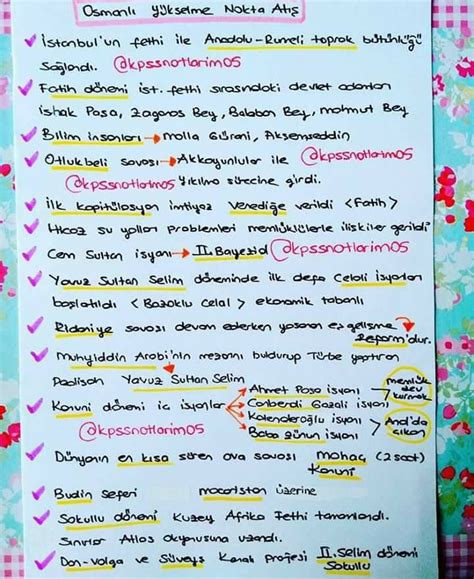 Osmanlı Yükselme Nokta Atış
İstanbul'un fethi ile Anadolu-Rumeli toprak bütünlüğü
Sağlandı. @kpssnotlarim05
Fatih dönemi ist. fethi sırasındaki devlet adamları
ishak Paşa, Zaganos Bey, Balaban Bey, mahmut Bey
Bilim insanları → molla Gürani, Akşemseddin
Otlukbeli savaşı → Akkoyunlular ile @kpssnotlarim05
@kpssnotlarim05 Yıkılma sürecine girdi.
İlk kapitülasyon imtiyaz Venediğe verildi <Fatih>
Hicaz su yolları problemleri memlüklülerle ilişkiler gerildi
Cem Sultan isyanı → II.Bayezid @kpssnotlarim05
Yavuz Sultan Selim döneminde ilk defa Celali isyanları
başlatıldı <Bozoklu Celal> ekonomik tabanlı
Ridaniye savaşı devam ederken yaşanan
Reform'dur.
Muhyiddin Arabi'nin mezarını buldurup Türbe yaptıran
Padişah Yavuz Sultan Selim
Kanuni dönemi iç isyanlar → Ahmet Paşa isyanı
Canberdi Gazali isyanı
Kalenderoğlu isyanı
Baba Zünun isyanı
memlük
dev
kurmak
And'da
çıkan
@kpssnotlarim05
Dünyanın en kısa süren ova savaşı mohaç (2 saat)
Kanuni
Budin Seferi macaristan üzerine
Sokullu dönemi Kuzey Afrika Fethi tamamlandı.
Sınırlar Atlas okyanusuna uzandı.
Don-Volga ve Süveyş Kanalı Projesi II.Selim dönemi
Sokullu